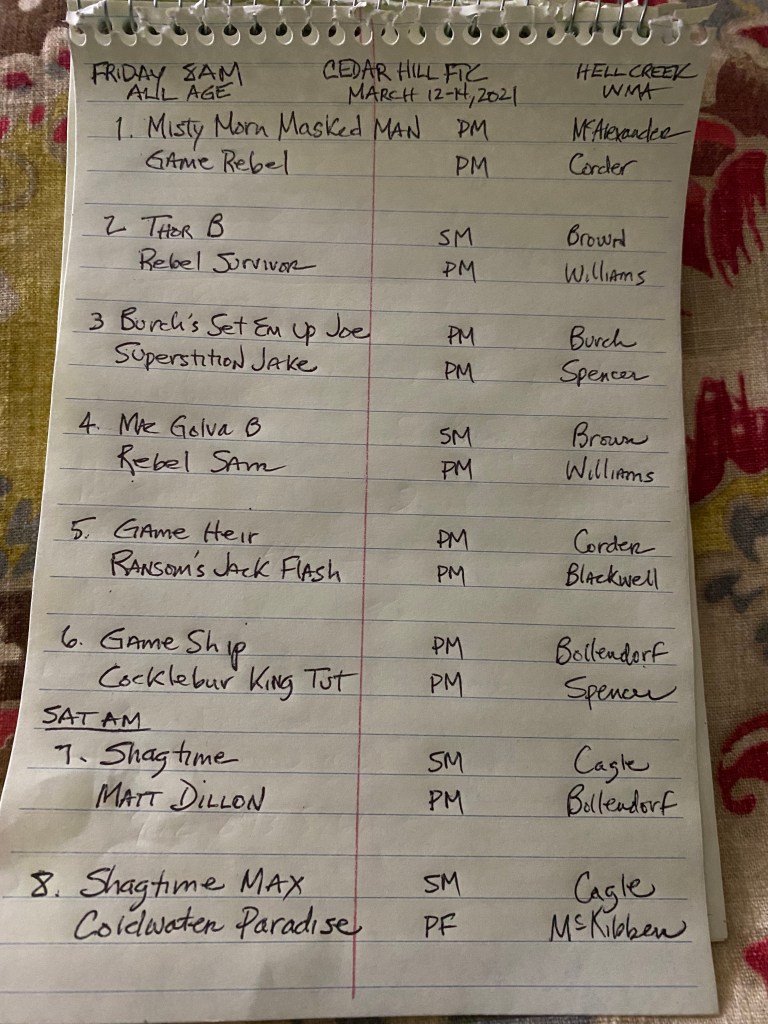 FRIDAY 8AM CEDAR HILL FTC HELL CREEK
ALL AGE MARCH 12-14, 2021 WMA
1. Misty Morn Masked MAN PM McAlexander
GAME Rebel PM Corder
2 THOR B SM Brown
Rebel Survivor PM Williams
3 Burch's Set Em Up Joe PM Burch
Superstition Jake PM Spencer
4. Mae Galva B SM Brown
Rebel SAM PM Williams
5. GAME Heir PM Corder
RANSOM'S JACK FLASH PM Blackwell
6. GAME Ship PM Bollendorf
Cocklebur King Tut PM Spencer
SAT AM
7. Shagtime SM Cagle
MATT DILLON PM Bollendorf
8. Shagtime MAX SM Cagle
Coldwater Paradise PF McKibben